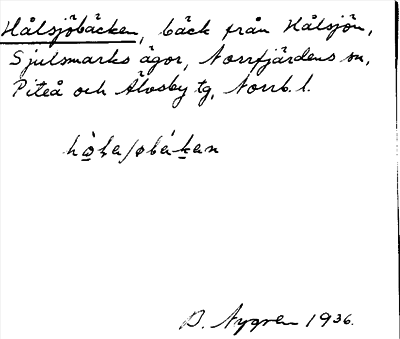 Hålsjöbäcken, bäck från Hålsjön,
Sjulsmarks ägor, Norrfjärdens sn,
Piteå och Älvsby tg, Norrb. l.
D. Nygren 1936.